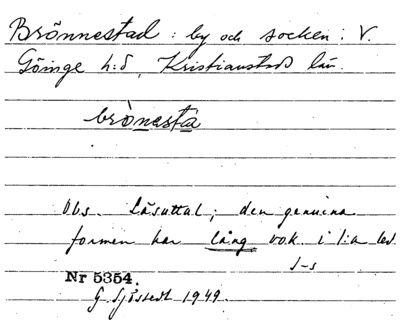 Brönnestad : by och socken : V.
Göinge h:d, Kristianstads län.
brònesta
Obs. Läsuttal; den genuina
formen har lång vok. i 1:a led.
J-s
Nr 5354.
G. Sjöstedt 1949.